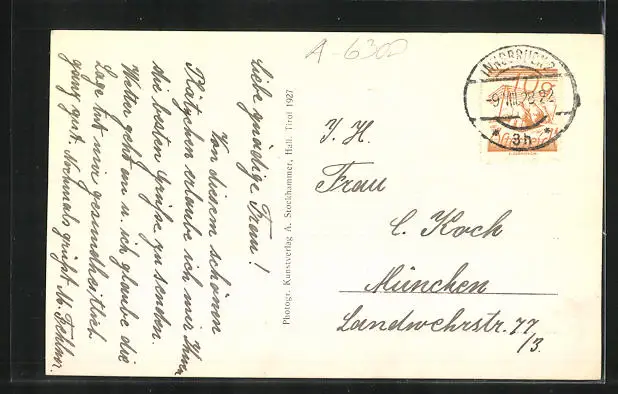 A-6300
Liebe gnädige Frau!
Von diesem schönen
Plätzchen erlaube ich mir Ihnen
die besten Grüße zu senden.
Wetter geht an u. ich glaube die
Lage tut mir gesundheitlich
ganz gut. Nochmals grüßt M.
Photogr. Kunstverlag A. Stockhammer, Hall. Tirol 1927
INNSBRUCK 2
3h
I. H.
Frau
C. Koch
München
Landwehrstr. 77
/3.